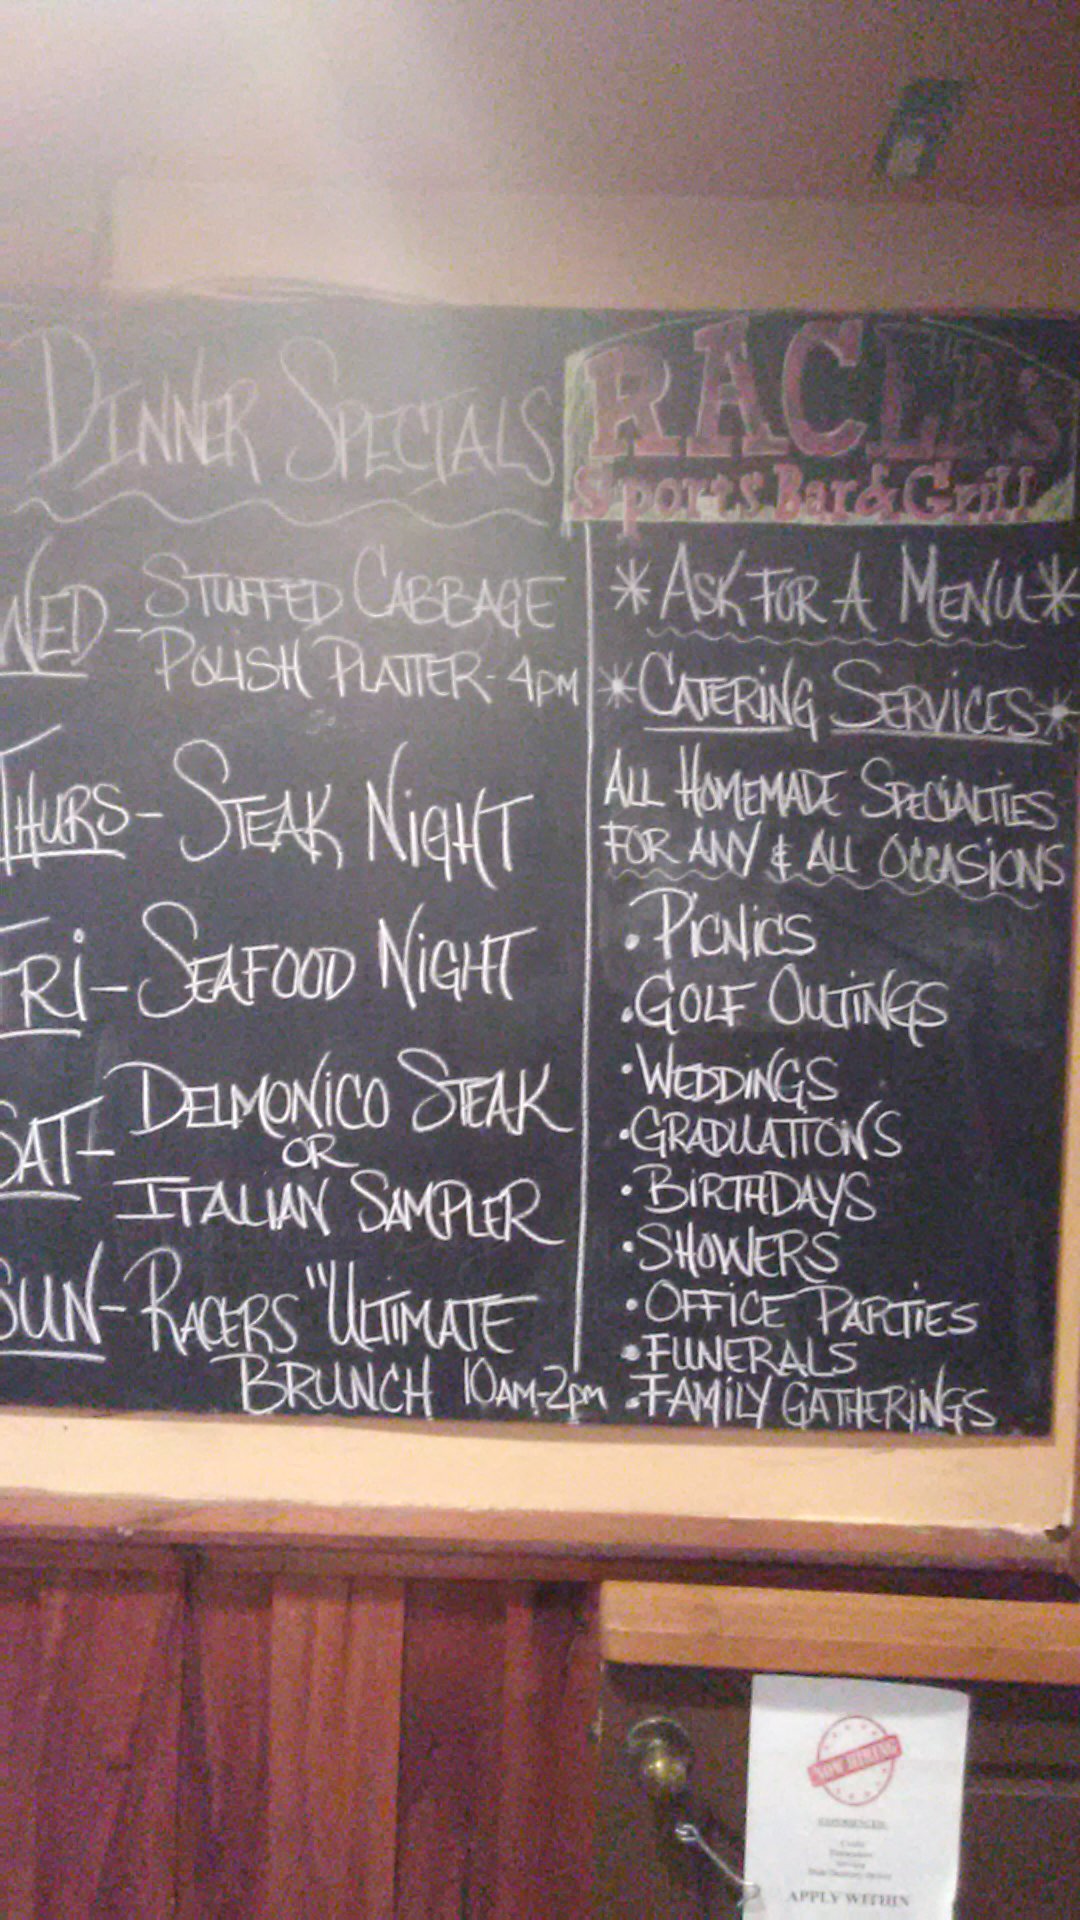 DINNER SPECIALS
WED - STUFFED CABBAGE
POLISH PLATTER - 4PM
THURS - STEAK NIGHT
FRI - SEAFOOD NIGHT
SAT - DELMONICO STEAK
OR
ITALIAN SAMPLER
SUN - RACERS "ULTIMATE
BRUNCH 10AM-2PM
RACERS
Sports Bar & Grill
* ASK FOR A MENU *
* CATERING SERVICES *
ALL HOMEMADE SPECIALTIES
FOR ANY & ALL OCCASIONS
• PICNICS
• GOLF OUTINGS
• WEDDINGS
• GRADUATIONS
• BIRTHDAYS
• SHOWERS
• OFFICE PARTIES
• FUNERALS
• FAMILY GATHERINGS
NOW HIRING
APPLY WITHIN